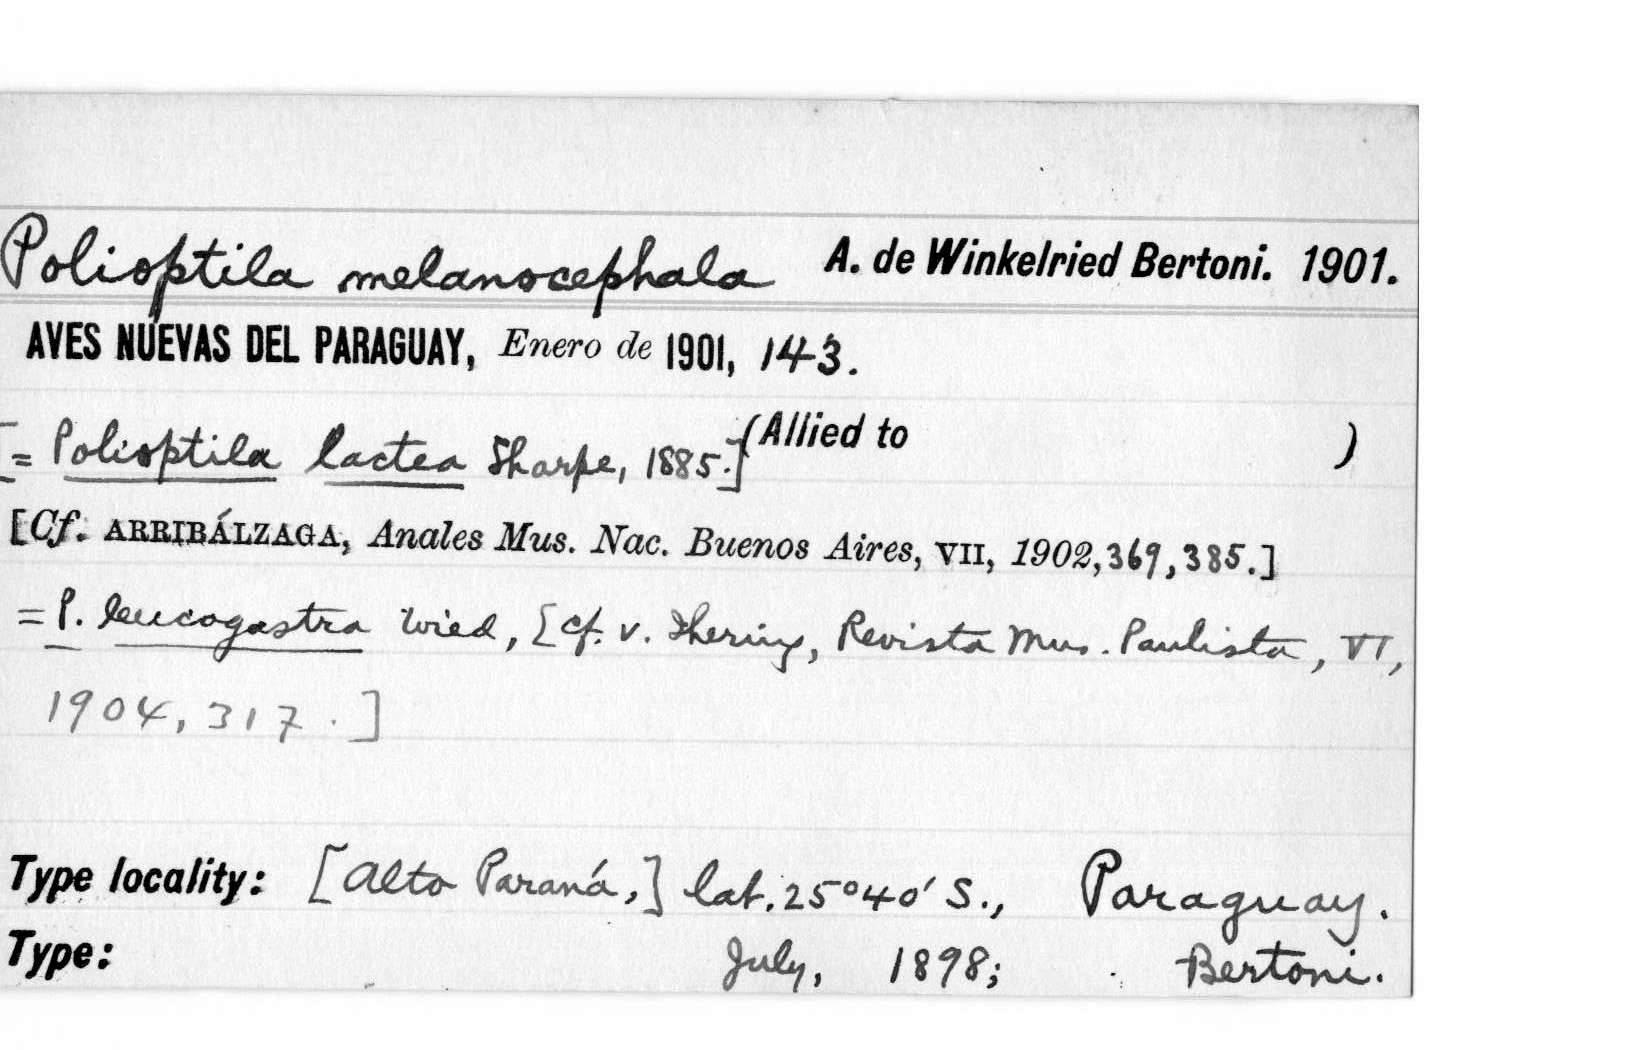 Polioptila melanocephala A. de Winkelried Bertoni. 1901.
AVES NUEVAS DEL PARAGUAY, Enero de 1901, 143.
[= Polioptila lactea Sharpe, 1885.] (Allied to )
[Cf. ARRIBÁLZAGA, Anales Mus. Nac. Buenos Aires, VII, 1902, 369, 385.]
= P. leucogastra Wied, [cf. v. Ihering, Revista Mus. Paulista, VI,
1904, 317.]
Type locality: [Alto Paraná,] lat. 25°40' S., Paraguay.
Type: July, 1898; Bertoni.